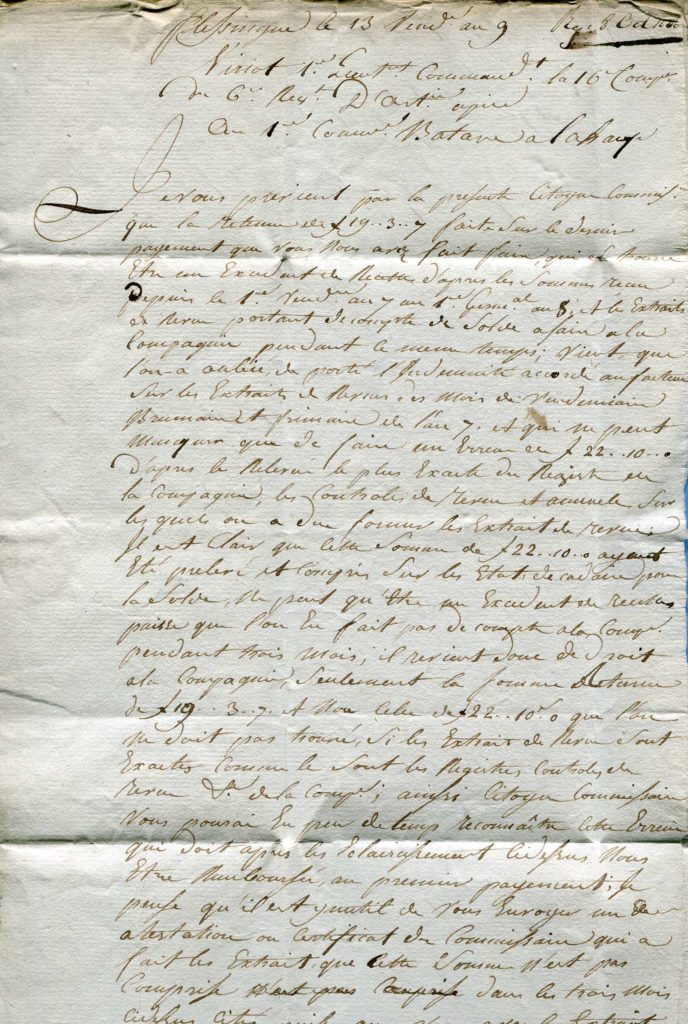 flessingue le 13 Vend.re au 9 Rec 8 Oct 1800
1er Lieut.nt Command.t la 16e Comp.e
du 6e Reg.t D'art.ie a pied
Au 1er Comm.re Batave a Lahaye
Je vous previent par la presente Citoyen Commiss.re
que la retenue de f 19..3..7 faite sur le dernier
payement que vous nous avez fait faire, qui se trouve
Etre un Excedent de Recettes d'apres les Sommes recue
Depuis le 1er Vend.re au 7 au 1er Germ.al au 8, et les Extraits
de Revue portant decompte de Solde a faire a la
Compagnie pendant le meme temps; vient, que
l'on a oublié, de porté l'Indemnité accordé au
Sur les Extraits de Revues des Mois de Vendemiaire
Brumaire et frimaire de l'an 7. et qui ne peut
Manquer que de faire un Erreur de f 22..10..0
D'apres le Releve le plus Exacte du Registre de
la Compagnie, les Controles de revue et annuele, Sur
les quels on a due former les Extrait de revue.
Il est Clair que Cette Somme de f 22..10..0 ayant
Eté preleré et Compris Sur les Etats de cadaire pour
la Solde, Ne peut qu'Etre un Excedent de recettes
puisse que l'on En fait pas de compte a la Comp.e
pendant trois Mois; il revient donc de Droit
a la Compagnie Seulement la Somme Retenue
de f 19..3..7. et Non Celle de f 22..10..0 que l'on
ne doit pas trouvé, Si les Extrait de Revue Sont
Exactes Comme le Sont les Registres Controles de
revue &.a de la comp.e; ainsi Citoyen Commissaire
Vous pouvai En peu de temps reconnaître Cette Erreur
qui doit apres les Eclaircissement Cidessus Nous
Etre Rembourseé, au premier payement; Je
pense qu'il est ynutil de Vous Envoyer un
atestation ou Certificat du Commissaire qui a
fait les Extrait, que Cette Somme N'est pas
Comprise n'est pas Comprise dans les trois Mois
Cidessus Cités